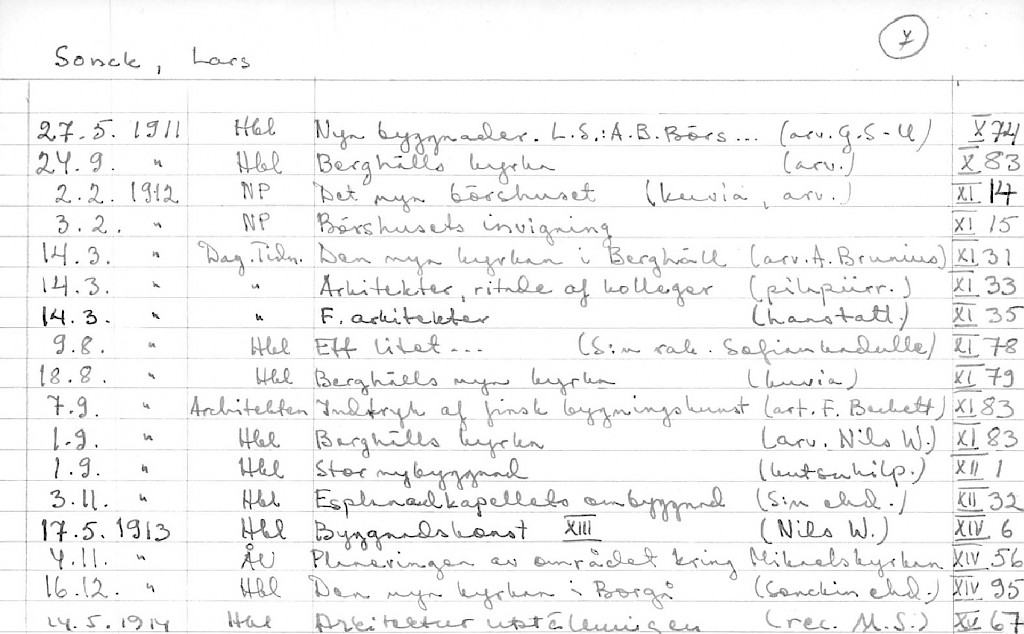 7
Sonck, Lars
27.5. 1911 Hbl Nya byggnader. L.S.: A.B. Börs... (arv. G.S-ll) X 74
24.9. " Hbl Berghälls kyrka (arv.) X 83
2.2. 1912 NP Det nya börshuset (kuvia, arv.) XI 14
3.2. " NP Börshusets invigning XI 15
14.3. " Dag. Tidn. Den nya kyrkan i Berghäll (arv. A. Brunius) XI 31
14.3. " " Arkitekter, ritade af kolleger (pilapiirr.) XI 33
14.3. " " F. arkitekter (hanstatt.) XI 35
9.8. " Hbl Ett litet... (S:n rak. Sofiankadulle) XI 78
18.8. " Hbl Berghälls nya kyrka (kuvia) XI 79
7.9. " Architekten Indtryk af finsk bygningskunst (art. F. Beckett) XI 83
1.9. " Hbl Berghälls kyrka (arv. Nils W.) XI 83
1.9. " Hbl Stor nybyggnad (kutsukilp.) XII 1
3.11. " Hbl Esplanadkapellets ombyggnad (S:n ehd.) XII 32
17.5. 1913 Hbl Byggnadskonst XIII (Nils W.) XIV 6
4.11. " ÅU Planeringen av området kring Mikaelskyrkan XIV 56
16.12. " Hbl Den nya kyrkan i Borgå (Sonckin ehd.) XIV 95
14.5. 1914 Hbl Arkitektur utställningen (rec. M.S.) XV 67